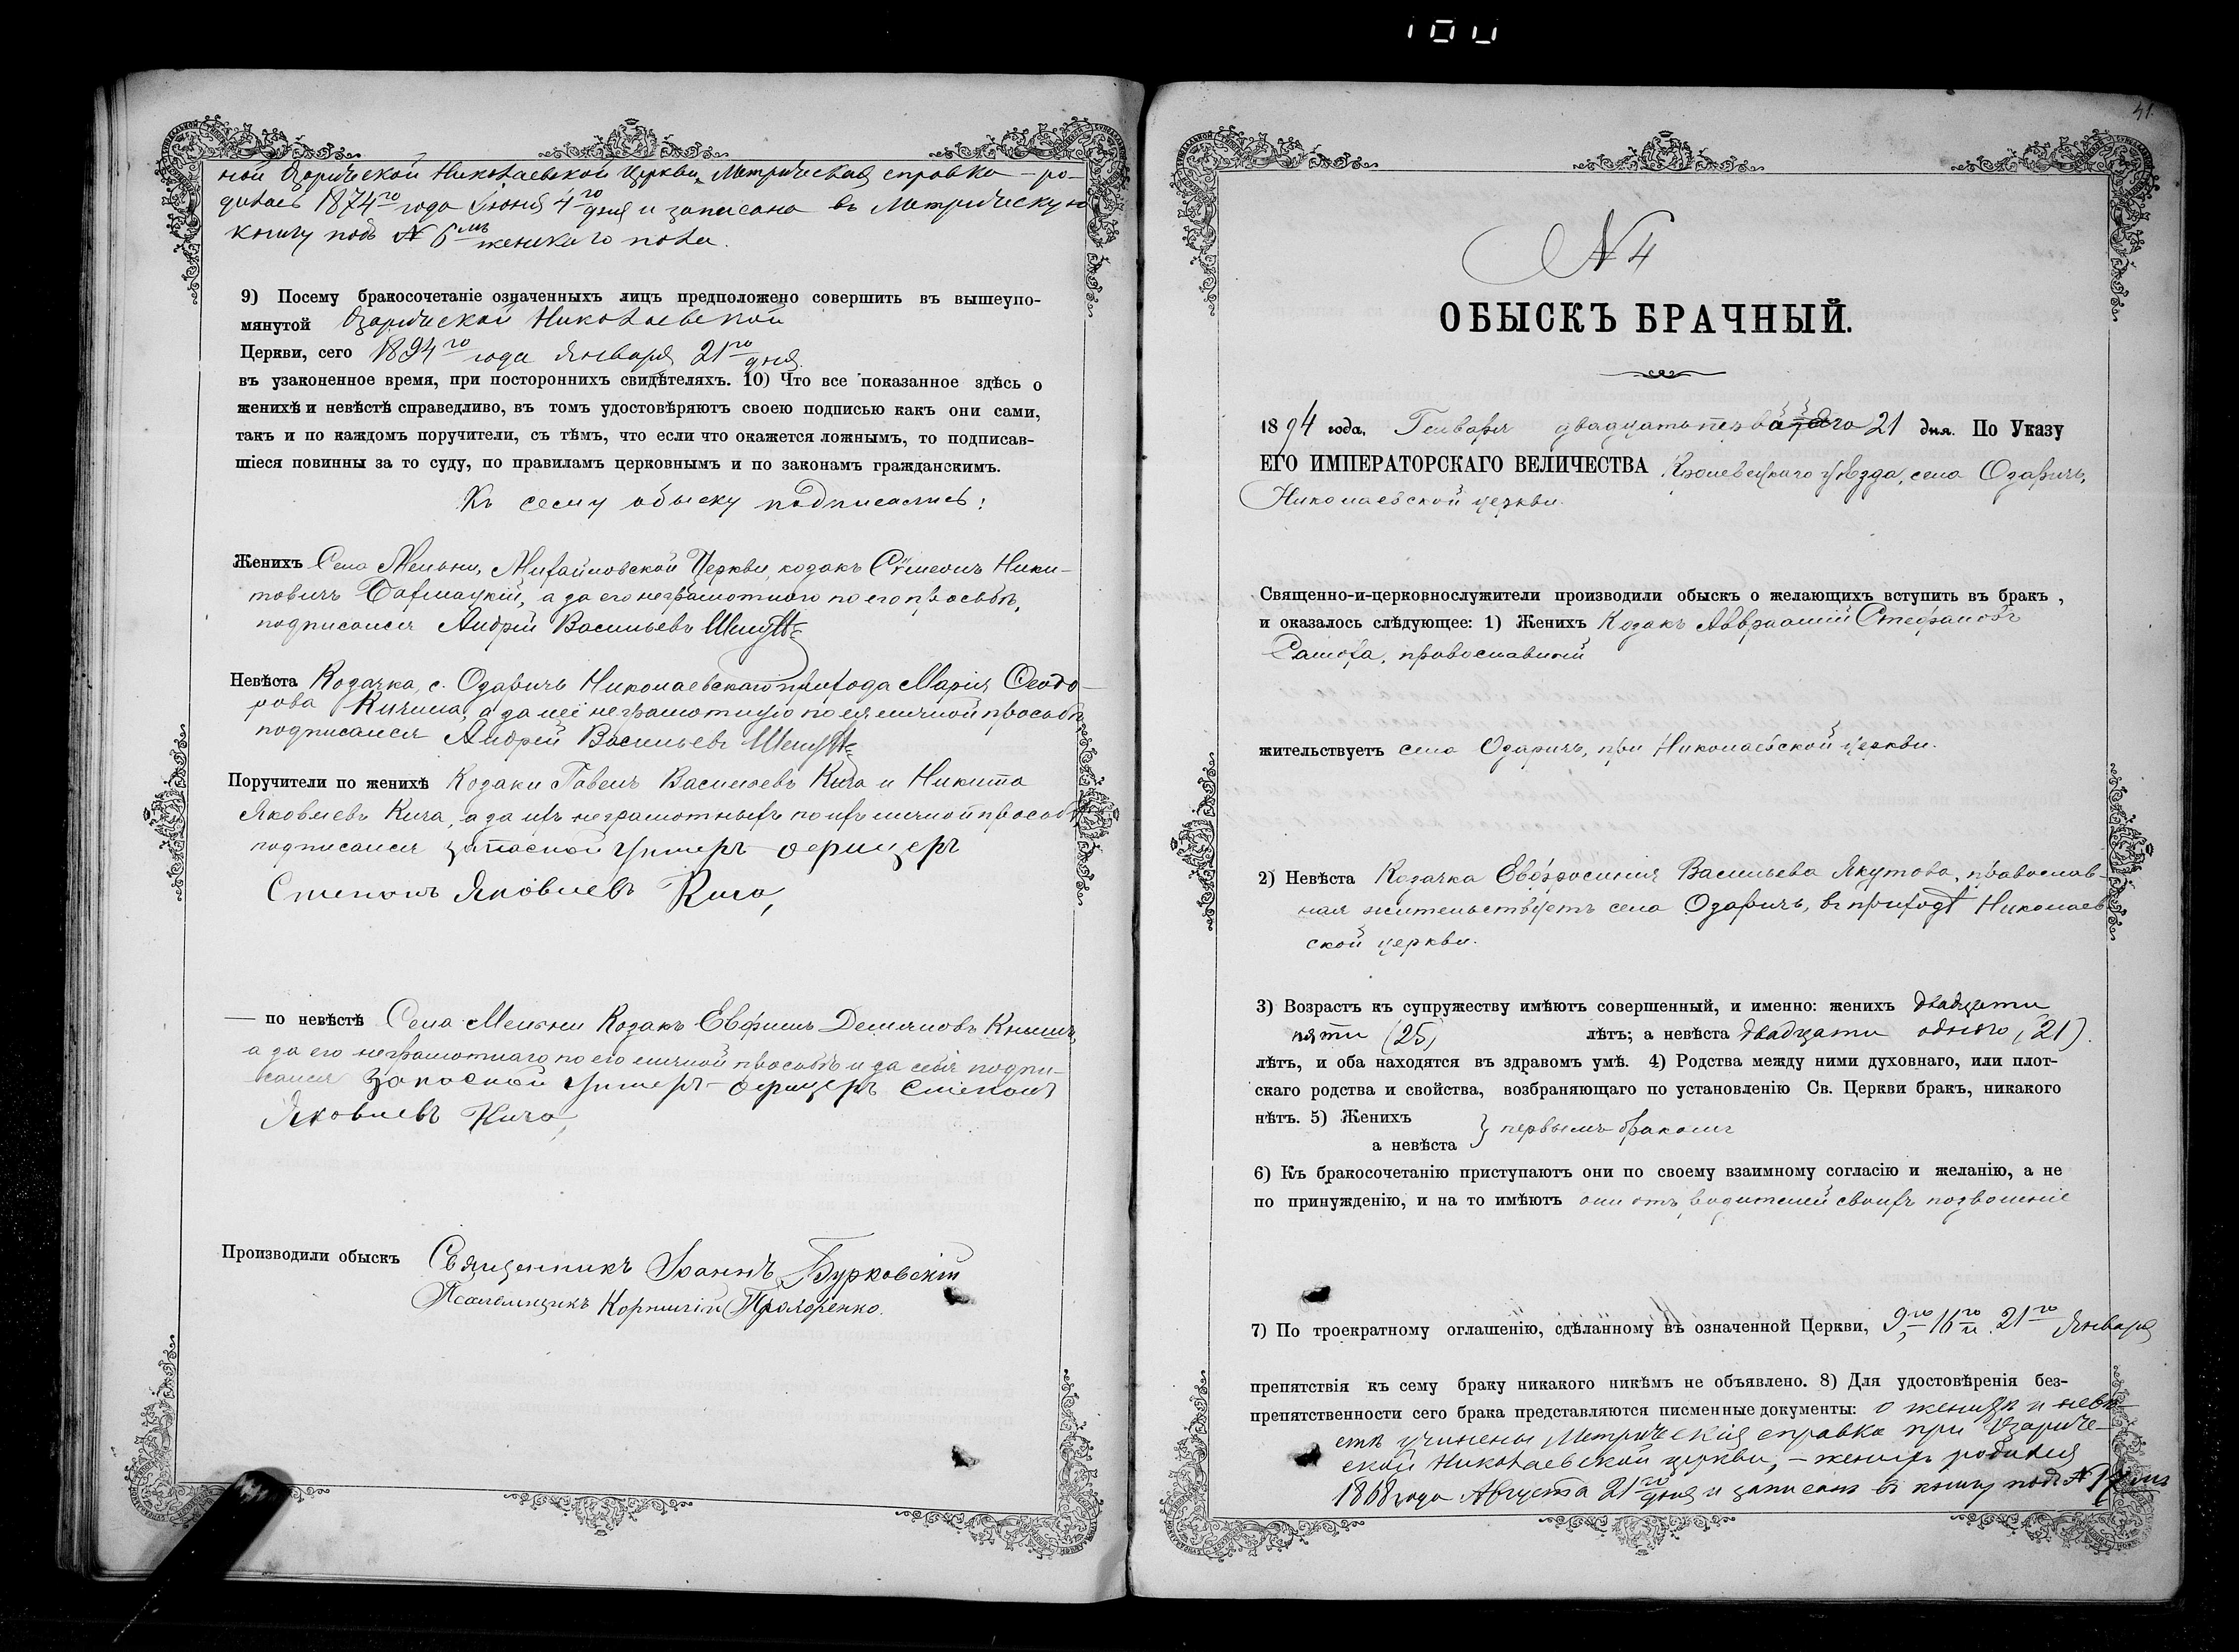 100
ной Озарической Николаевской церкви, Метрическая справка – ро-
дилась 1874го года Iюня 4го дня и записана въ Метрическую
книгу подъ № 6мъ женскаго пола.
9) Посему бракосочетаніе означенныхъ лицъ предположено совершить въ вышеупо-
мянутой Озарической Николаевской
Церкви, сего 1894го года Января 21го дня.
въ узаконенное время, при постороннихъ свидѣтеляхъ. 10) Что все показанное здѣсь о
женихѣ и невѣстѣ справедливо, въ томъ удостовѣряютъ своею подписью какъ они сами,
такъ и по каждомъ поручители, съ тѣмъ, что если что окажется ложнымъ, то подписав-
шіеся повинны за то суду, по правиламъ церковнымъ и по законамъ гражданскимъ.
Къ сему обыску подписались:
Женихъ Села Мельни, Михайловской Церкви, козакъ Сѵмеонъ Ники-
товичъ а за его неграмотного по его прозьбѣ,
подписался Андрей Васильевъ
Невѣста Козачка, с. Озаричъ Николаевскаго прихода Марія Ѳеодо-
рова Кичина, а за неё неграмотную по ея личной прозьбѣ
подписался Андрей Васильевъ
Поручители по женихѣ Козаки Павелъ Васильевъ Кича и Никита
Яковлевъ Кича, а за ихъ неграмотныхъ по ихъ личной прозьбѣ
подписался запасной унтеръ-офицеръ
Степанъ Яковлевъ Кича,
— по невѣстѣ Села Мельни Козакъ Евфимъ Демяновъ
а за его неграмотнаго по его личной прозьбѣ и за себя подпи-
сался запасной унтеръ-офицеръ Степанъ
Яковлевъ Кича,
Производили обыскъ Священникъ Іоаннъ Бурковскій
Псаломщикъ Корнилій
41.
№ 4
ОБЫСКЪ БРАЧНЫЙ.
1894 года, Генваря двадцать перваго 21 дня. По Указу
ЕГО ИМПЕРАТОРСКАГО ВЕЛИЧЕСТВА Кролевецкаго уѣзда, села Озаричъ,
Николаевской церкви.
Священно-и-церковнослужители производили обыскъ о желающихъ вступить въ бракъ ,
и оказалось слѣдующее: 1) Женихъ Козакъ Авраамій Стефановъ
Самоха, православный
жительствуетъ села Озаричъ, при Николаевской церкви.
2) Невѣста Козачка Евфросинія Васильева Якутова, православ-
ная жительствуетъ села Озаричъ, въ приходѣ Николаев-
ской церкви.
3) Возрастъ къ супружеству имѣютъ совершенный, и именно: женихъ двадцати
пяти (25) лѣтъ; а невѣста двадцати одного (21).
лѣтъ, и оба находятся въ здравомъ умѣ. 4) Родства между ними духовнаго, или плот-
скаго родства и свойства, возбраняющаго по установленію Св. Церкви бракъ, никакого
нѣтъ. 5) Женихъ
а невѣста } первымъ бракомъ
6) Къ бракосочетанію приступаютъ они по своему взаимному согласію и желанію, а не
по принужденію, и на то имѣютъ они отъ родителей своихъ позволеніе
7) По троекратному оглашенію, сдѣланному въ означенной Церкви, 9го, 16го и 21го Января
препятствія къ сему браку никакого никѣмъ не объявлено. 8) Для удостовѣренія без-
препятственности сего брака представляются писменные документы: о женихѣ и невѣ-
стѣ учинены Метрическія справка при Озариче-
ской Николаевской церкви, – женихъ родился
1868 года Августа 21го дня и записанъ въ книгу подъ №